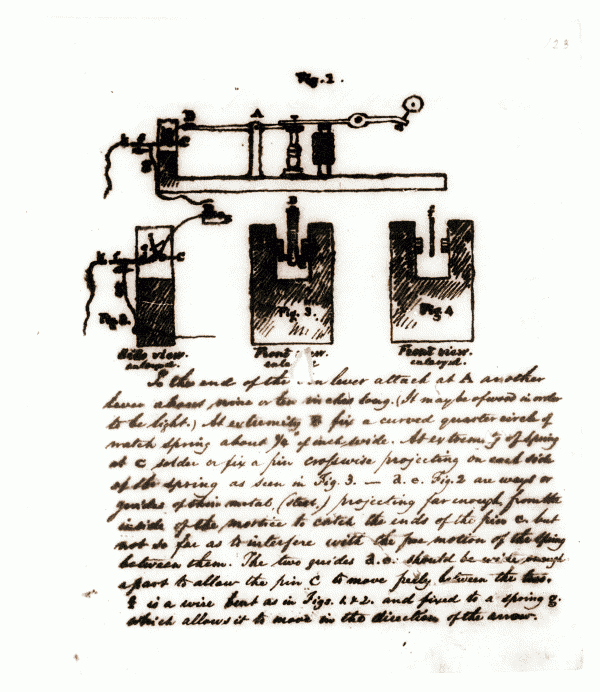 23
Fig. 2.
B
A
k
f
C
g
k
f
C
g
Fig. 3
Fig. 4
Side view
enlarged.
Front view
Front view
enlarged.
To the end of the lever attach at A another
lever about nine or ten inches long. (It may be of wood in order
to be light.) At extremity B fix a curved quarter circle of
watch spring about of inch wide. At extremity of spring
at C solder or fix a pin crosswise projecting on each side
of the spring as seen in Fig. 3. — d. e. Fig. 2 are ways or
guides of thin metal, (steel,) projecting far enough, from the
inside of the mortice to catch the ends of the pin C. but
not so far as to interfere with the free motion of the spring
between them. The two guides d. e. should be wide enough
apart to allow the pin C to move freely between the two.
f is a wire bent as in Figs. 1. & 2. and fixed to a spring g.
which allows it to move in the direction of the arrow.